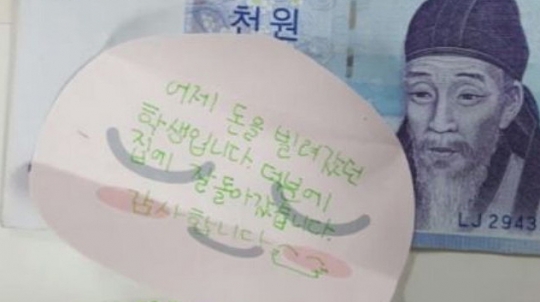 천원
어제 돈을 빌려갔던
학생입니다. 덕분에
집에 잘 돌아갔습니다.
감사합니다
LJ 2943